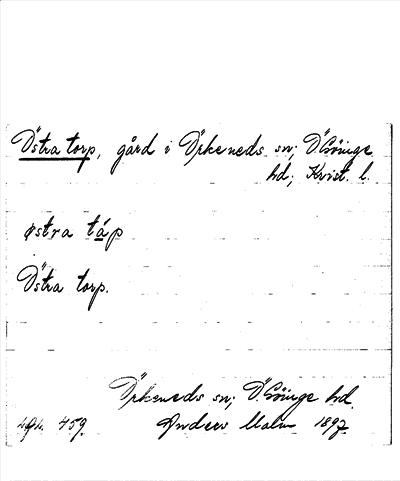 Östra torp, gård i Örkeneds sn; Ö. Göinge
hd; Krist. l.
østra táp
Östra torp.
Örkeneds sn; Ö. Göinge hd.
459. Anders Malm 1897